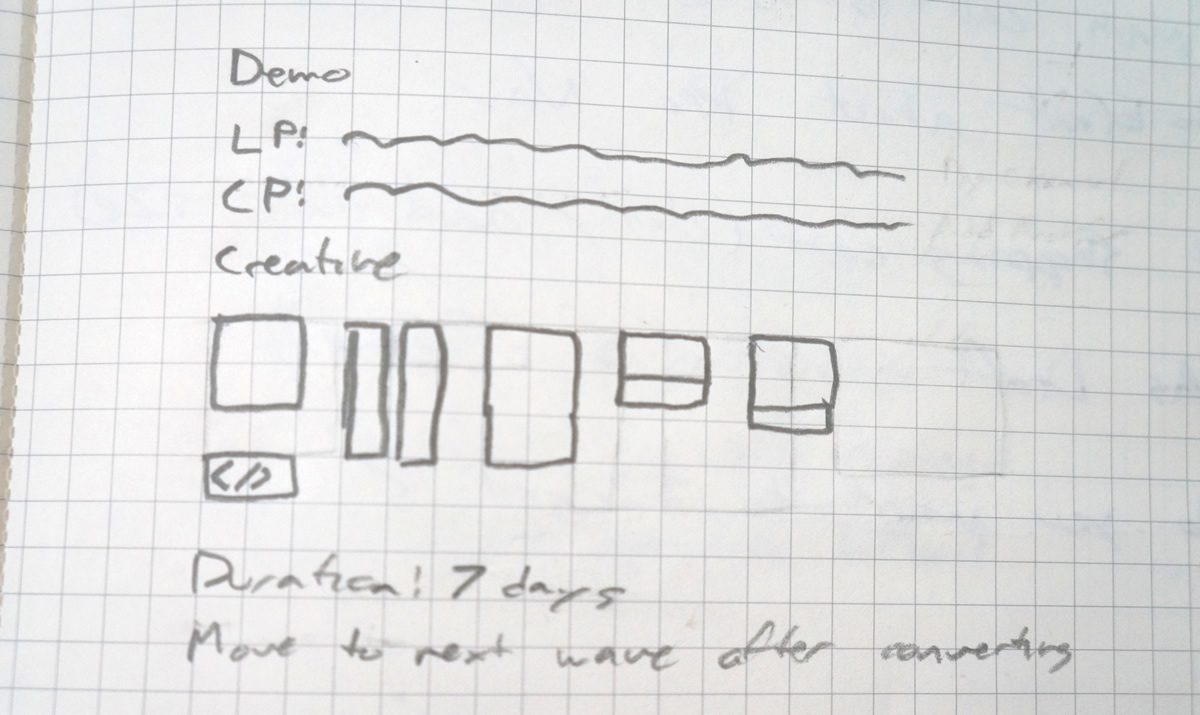 Demo
LP:
CP:
Creative
</>
Duration: 7 days
Move to next wave after converting